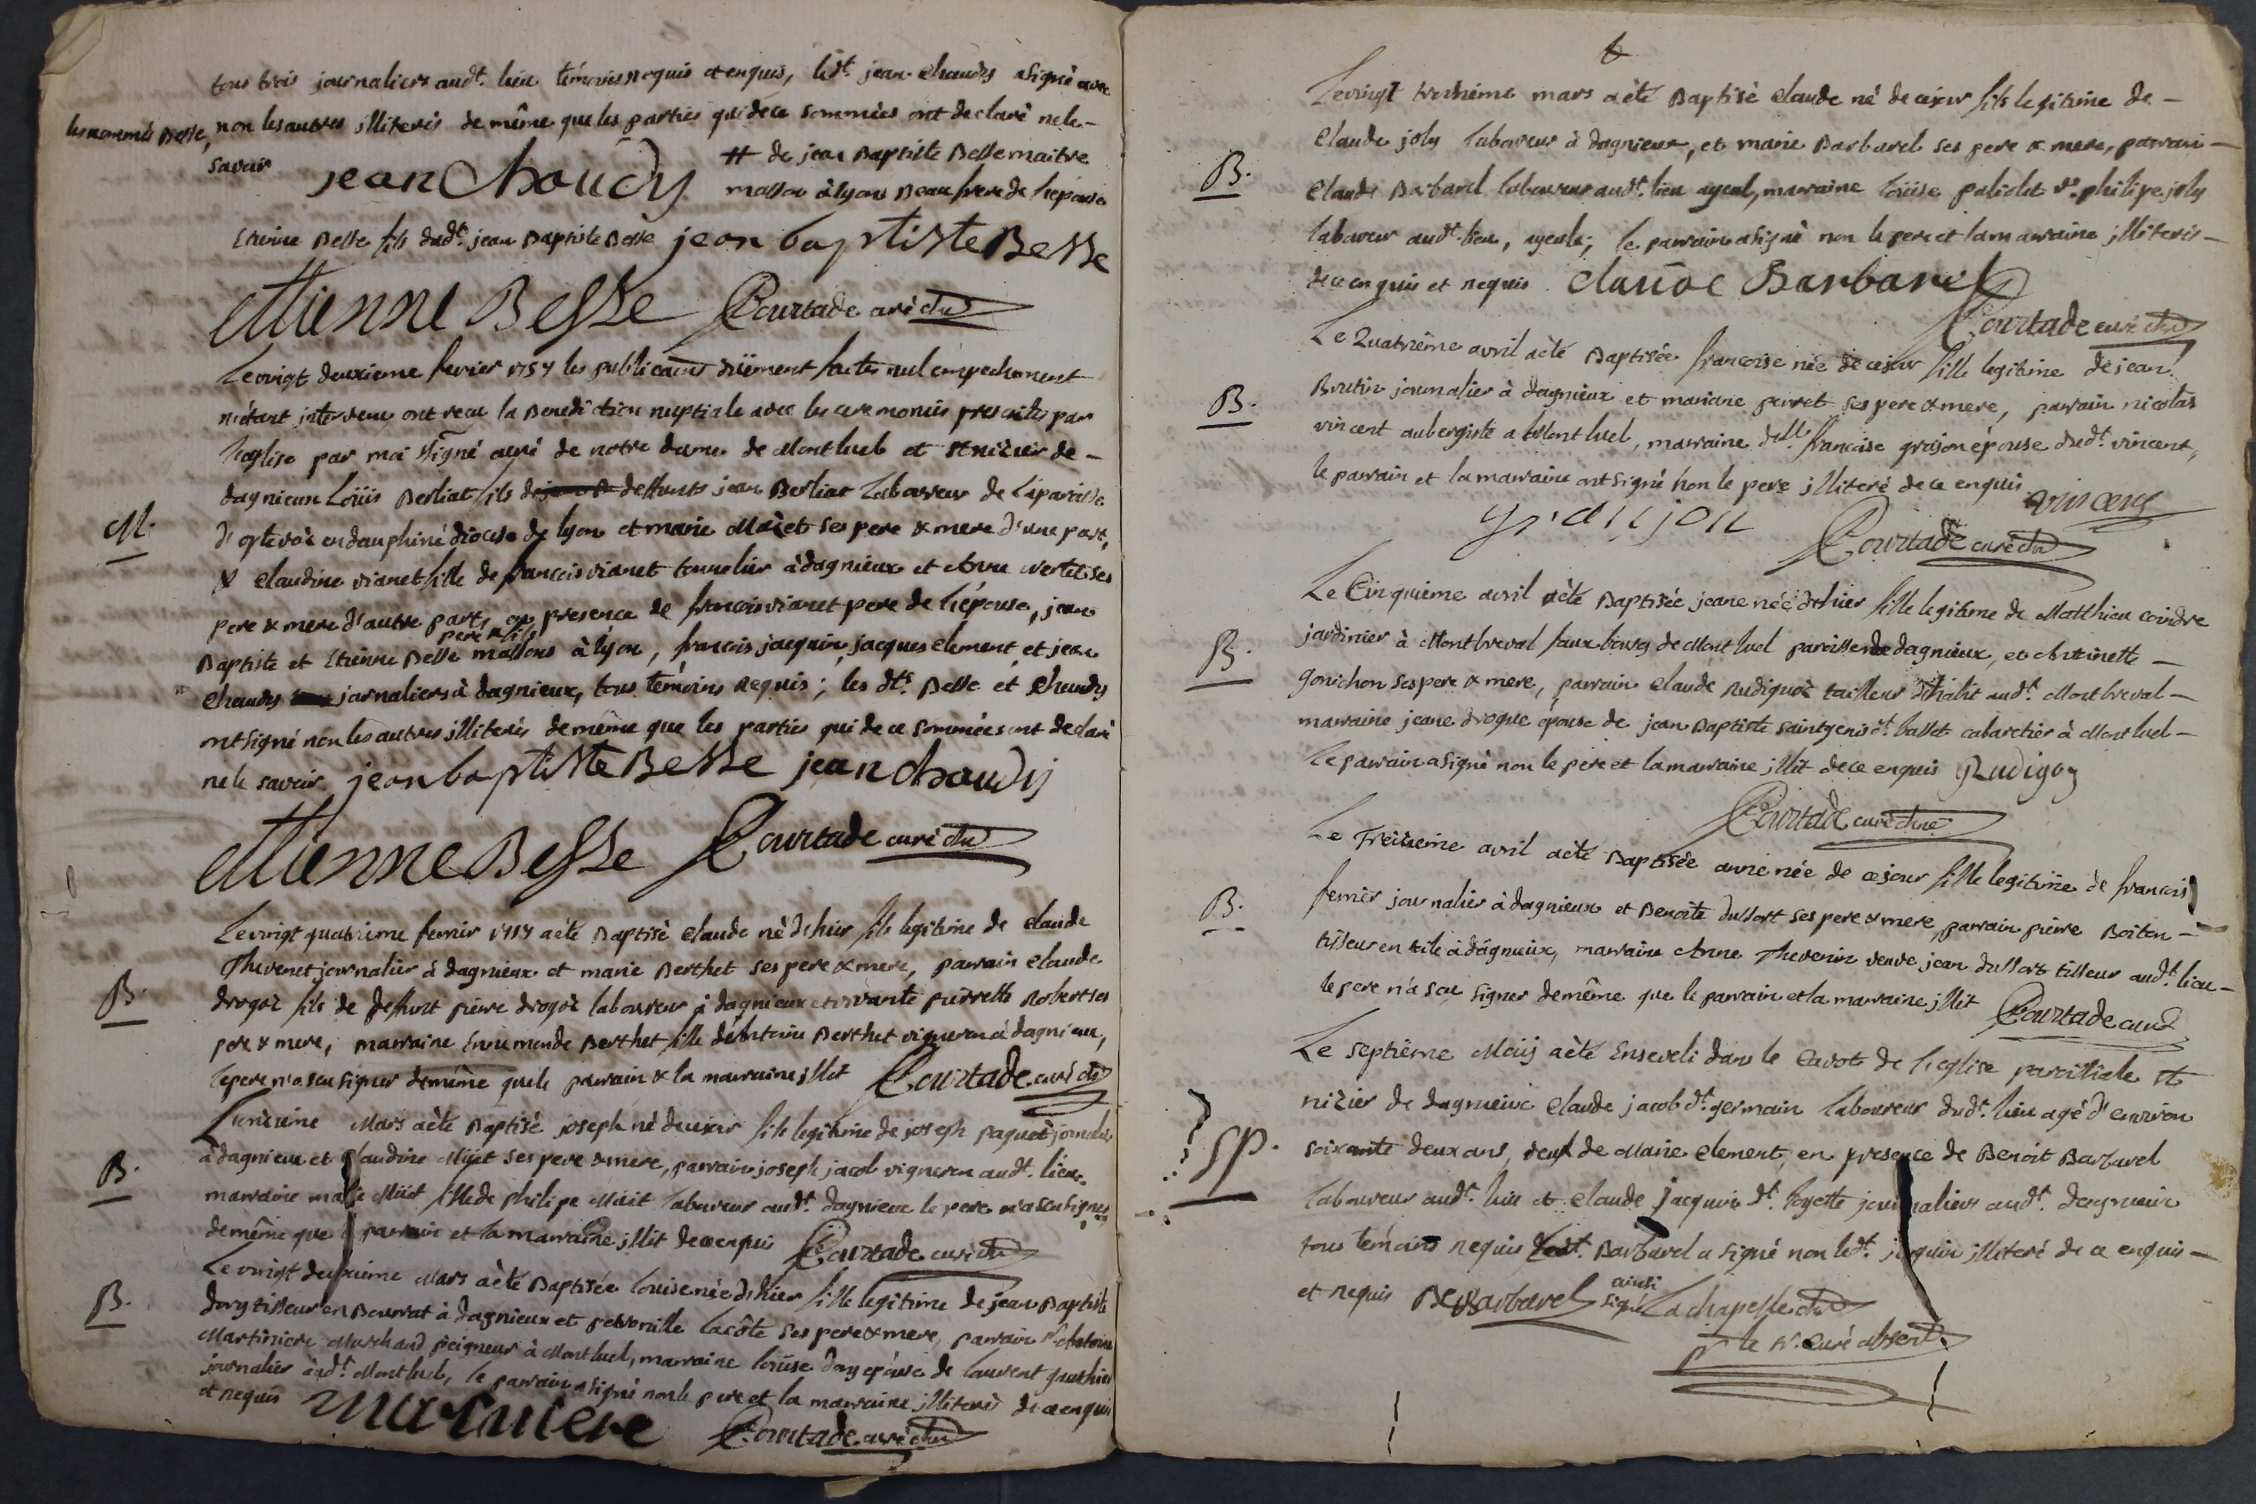 tous trois journaliers audt. lieu témoins requis et enquis, ledt. jean chaudy a signé avec
les nommés Besse, non les autres illiterés de même que les parties qui de ce sommées ont declaré ne le -
savoir
jean Choudy
# de jean Baptiste Besse maitre
masson à lyon Beaufrere de l'épouse
Etienne Besse fils dudt. jean Baptiste Besse jean baptiste Besse
ettienne Besse Courtade curé
Le vingt deuxieme fevrier 1757 les publications düement faites nul empechement
n'étant intervenu ont recu la Benediction nuptiale avec les ceremonies prescrites par
l'eglise par moi signé curé de notre dame de Montluel et st nizier de -
M.
dagnieux Loüis Berliat fils de deffunts jean Berliat laboureur de la paroisse
d'optevoz en dauphiné diocese de lyon et marie ses pere & mere d'une part,
& claudine vianet fille de francois vianet tonnelier à dagnieux et Anne ses
pere & mere d'autre part, en presence de francois vianet pere de l'épouse, jean
Baptiste et Etienne Besse pere & fils massons à lyon, francois jacquin, jacques clement et jean
chaudy journaliers à dagnieux, tous témoins requis; les dts. Besse et chaudy
ont signé non les autres illiterés de même que les parties qui de ce sommées ont declaré
ne le savoir jean baptiste Besse jean choudy
ettienne Besse Courtade curé
Le vingt quatrieme fevrier 1757 a été Baptisé claude né d'hier fils legitime de claude
Thevenet journalier à dagnieux et marie Berthet ses pere & mere, parrain claude
B.
drogoz fils de deffunt pierre drogoz laboureur à dagnieux et vivante pierrette Robert ses
pere & mere, marraine Enne monde Berthet fille d'Antoine Berthet vigneron à dagnieux,
le pere n'a seu signer de même que le parrain & la marraine illit Courtade curé
L'onzieme Mars a été Baptisé joseph né de ce jour fils legitime de joseph paquet journalier
B.
à dagnieux et claudine ses pere & mere, parrain joseph jacob vigneron audt. lieu
marraine marie fille de philipe laboureur audt. dagnieux le pere n'a seu signer
de même que le parrain et la marraine illit de ce enquis Courtade curé
Le vingt deuxieme Mars a été Baptisée Louise née d'hier fille legitime de jean Baptiste
B.
dory tisseur en Bourrat à dagnieux et petronille lacôte ses pere & mere, parrain sr. Antoine
Martiniere Marchand peigneur à Montluel, marraine loüise dory épouse de laurent gauthier
journalier audt. Montluel, le parrain a signé non le pere et la marraine illiterés de ce enquis
et requis martiniere Courtade curé
Le vingt troisieme mars a été Baptisé claude né de ce jour fils legitime de -
claude joly laboureur à dagnieux, et marie Barbarel ses pere & mere, parrain -
B.
claude Barbarel laboureur audt. lieu ayeul, marraine loüise paliolet ve. philipe joly
laboureur audt. lieu, ayeule; le parrain a signé non le pere et la marraine illiterés -
de ce enquis et requis claude Barbarel
Courtade curé
Le Quatrieme avril a été Baptisée francoise née de ce jour fille legitime de jean
B.
Brutin journalier à dagnieux et mariane perret ses pere & mere, parrain nicolas
vincent aubergiste a Montluel, marraine dlle francoise granjon épouse dudt. vincent,
le parrain et la marraine ont signé non le pere illiteré de ce enquis vincent
granjon Courtade curé
Le Cinquieme avril a été Baptisée jeane née d'hier fille legitime de Matthieu coindre
B.
jardinier à Montbreval faux bourg de Montluel paroisse de dagnieux, et Antoinette -
gonichon ses pere & mere, parrain claude Rudigoz tailleur d'habit audt. Montbreval -
marraine jeane drogue épouse de jean Baptiste saintgenis dt. ballet cabaretier à Montluel -
le parrain a signé non le pere et la marraine illit de ce enquis Rudigoz
Courtade curé
Le Treizieme avril a été Baptisée anne née de ce jour fille legitime de francois
B.
ferrier journalier à dagnieux et Benoite dussort ses pere & mere, parrain pierre Boiton -
tisseur en toile à dagnieux, marraine Anne Thevenin veuve jean dussort tisseur audt. lieu -
le pere n'a seu signer de même que le parrain et la marraine illit Courtade curé
Le septieme Maij a été Enseveli dans le Cavot de l'eglise paroissiale st
nizier de dagnieux claude jacob dt. germain laboureur dudt. lieu agé d'environ
Sp.
soixante deux ans, veuf de Marie clement, en presence de Benoit Barbarel
laboureur audt. lieu et claude jacquin dt. fayette journaliers audt. dagnieux
tous temoins requis ledt. Barbarel a signé non ledt. jacquin illiteré de ce enquis -
et requis B Barbarel ainsi signé Lachapelle
pr. le sr. curé absent